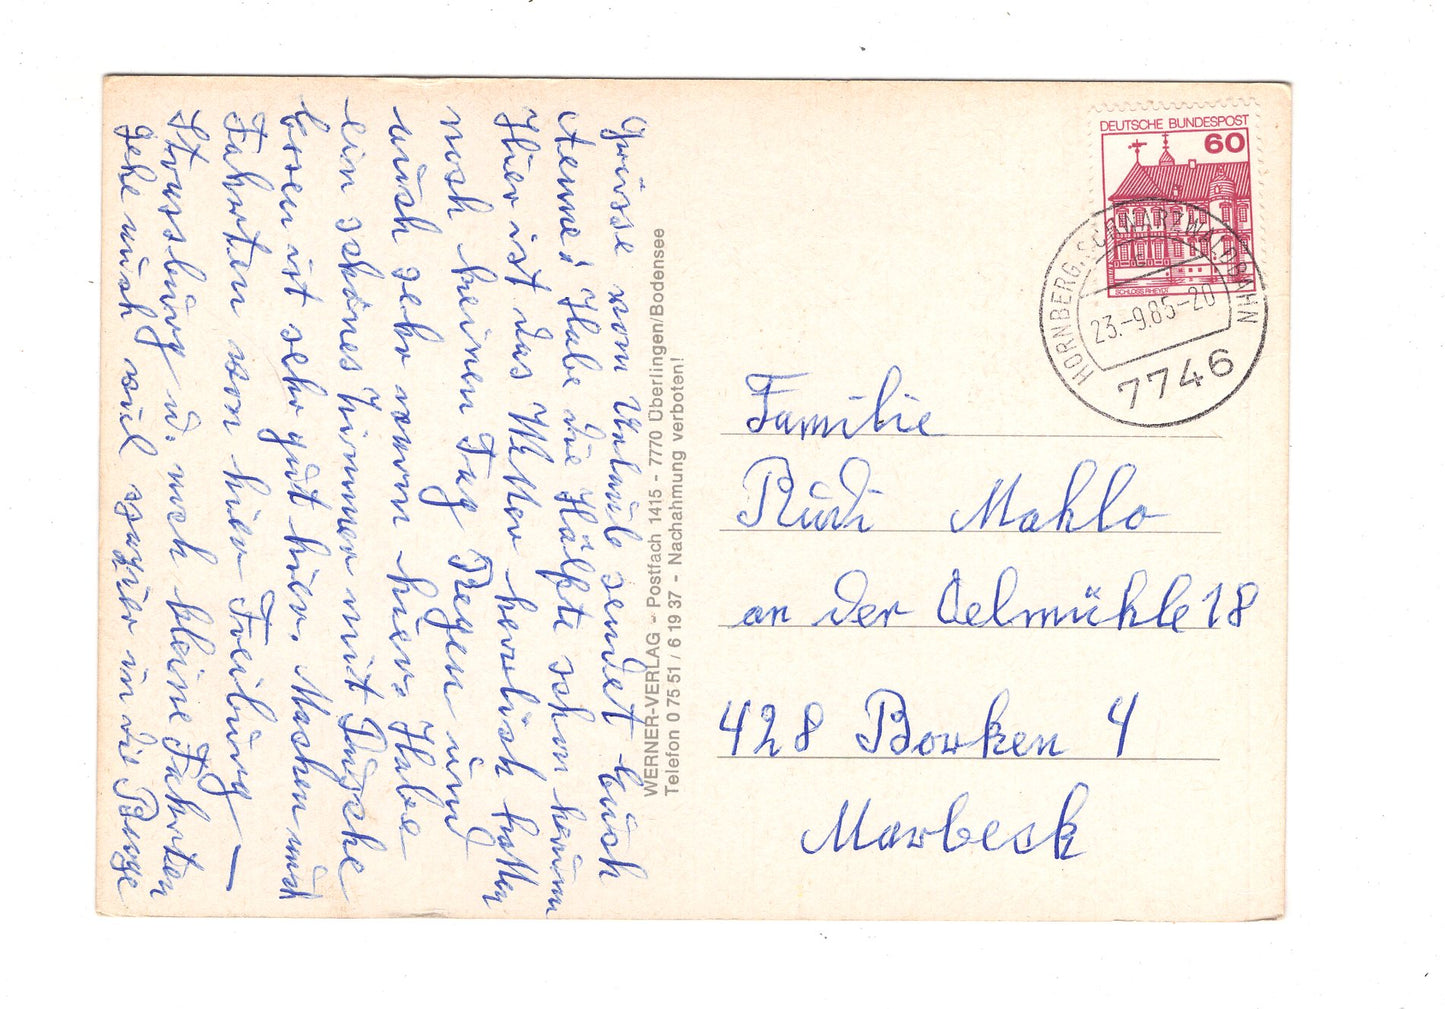 Grüsse vom Urlaub sendet Euch
Änne! Habe die Hälfte schon herum
Hier ist das Wetter herrlich hatten
noch keinen Tag Regen und
auch sehr warm hier. Habe
ein schönes Zimmer mit Dusche
Essen ist sehr gut hier. Machen auch
Fahrten von hier Freiburg –
Strassburg u. noch kleine Fahrten
gehe auch viel spazier in die Berge
WERNER-VERLAG - Postfach 1415 - 7770 Überlingen/Bodensee
Telefon 0 75 51 / 6 19 37 - Nachahmung verboten!
DEUTSCHE BUNDESPOST
60
SCHLOSS RHEYDT
HORNBERG, SCHWARZWALDBAHN
23.-9.85-20
7746
Familie
Rudi Mahlo
an der Oelmühle 18
428 Borken 4
Marbeck